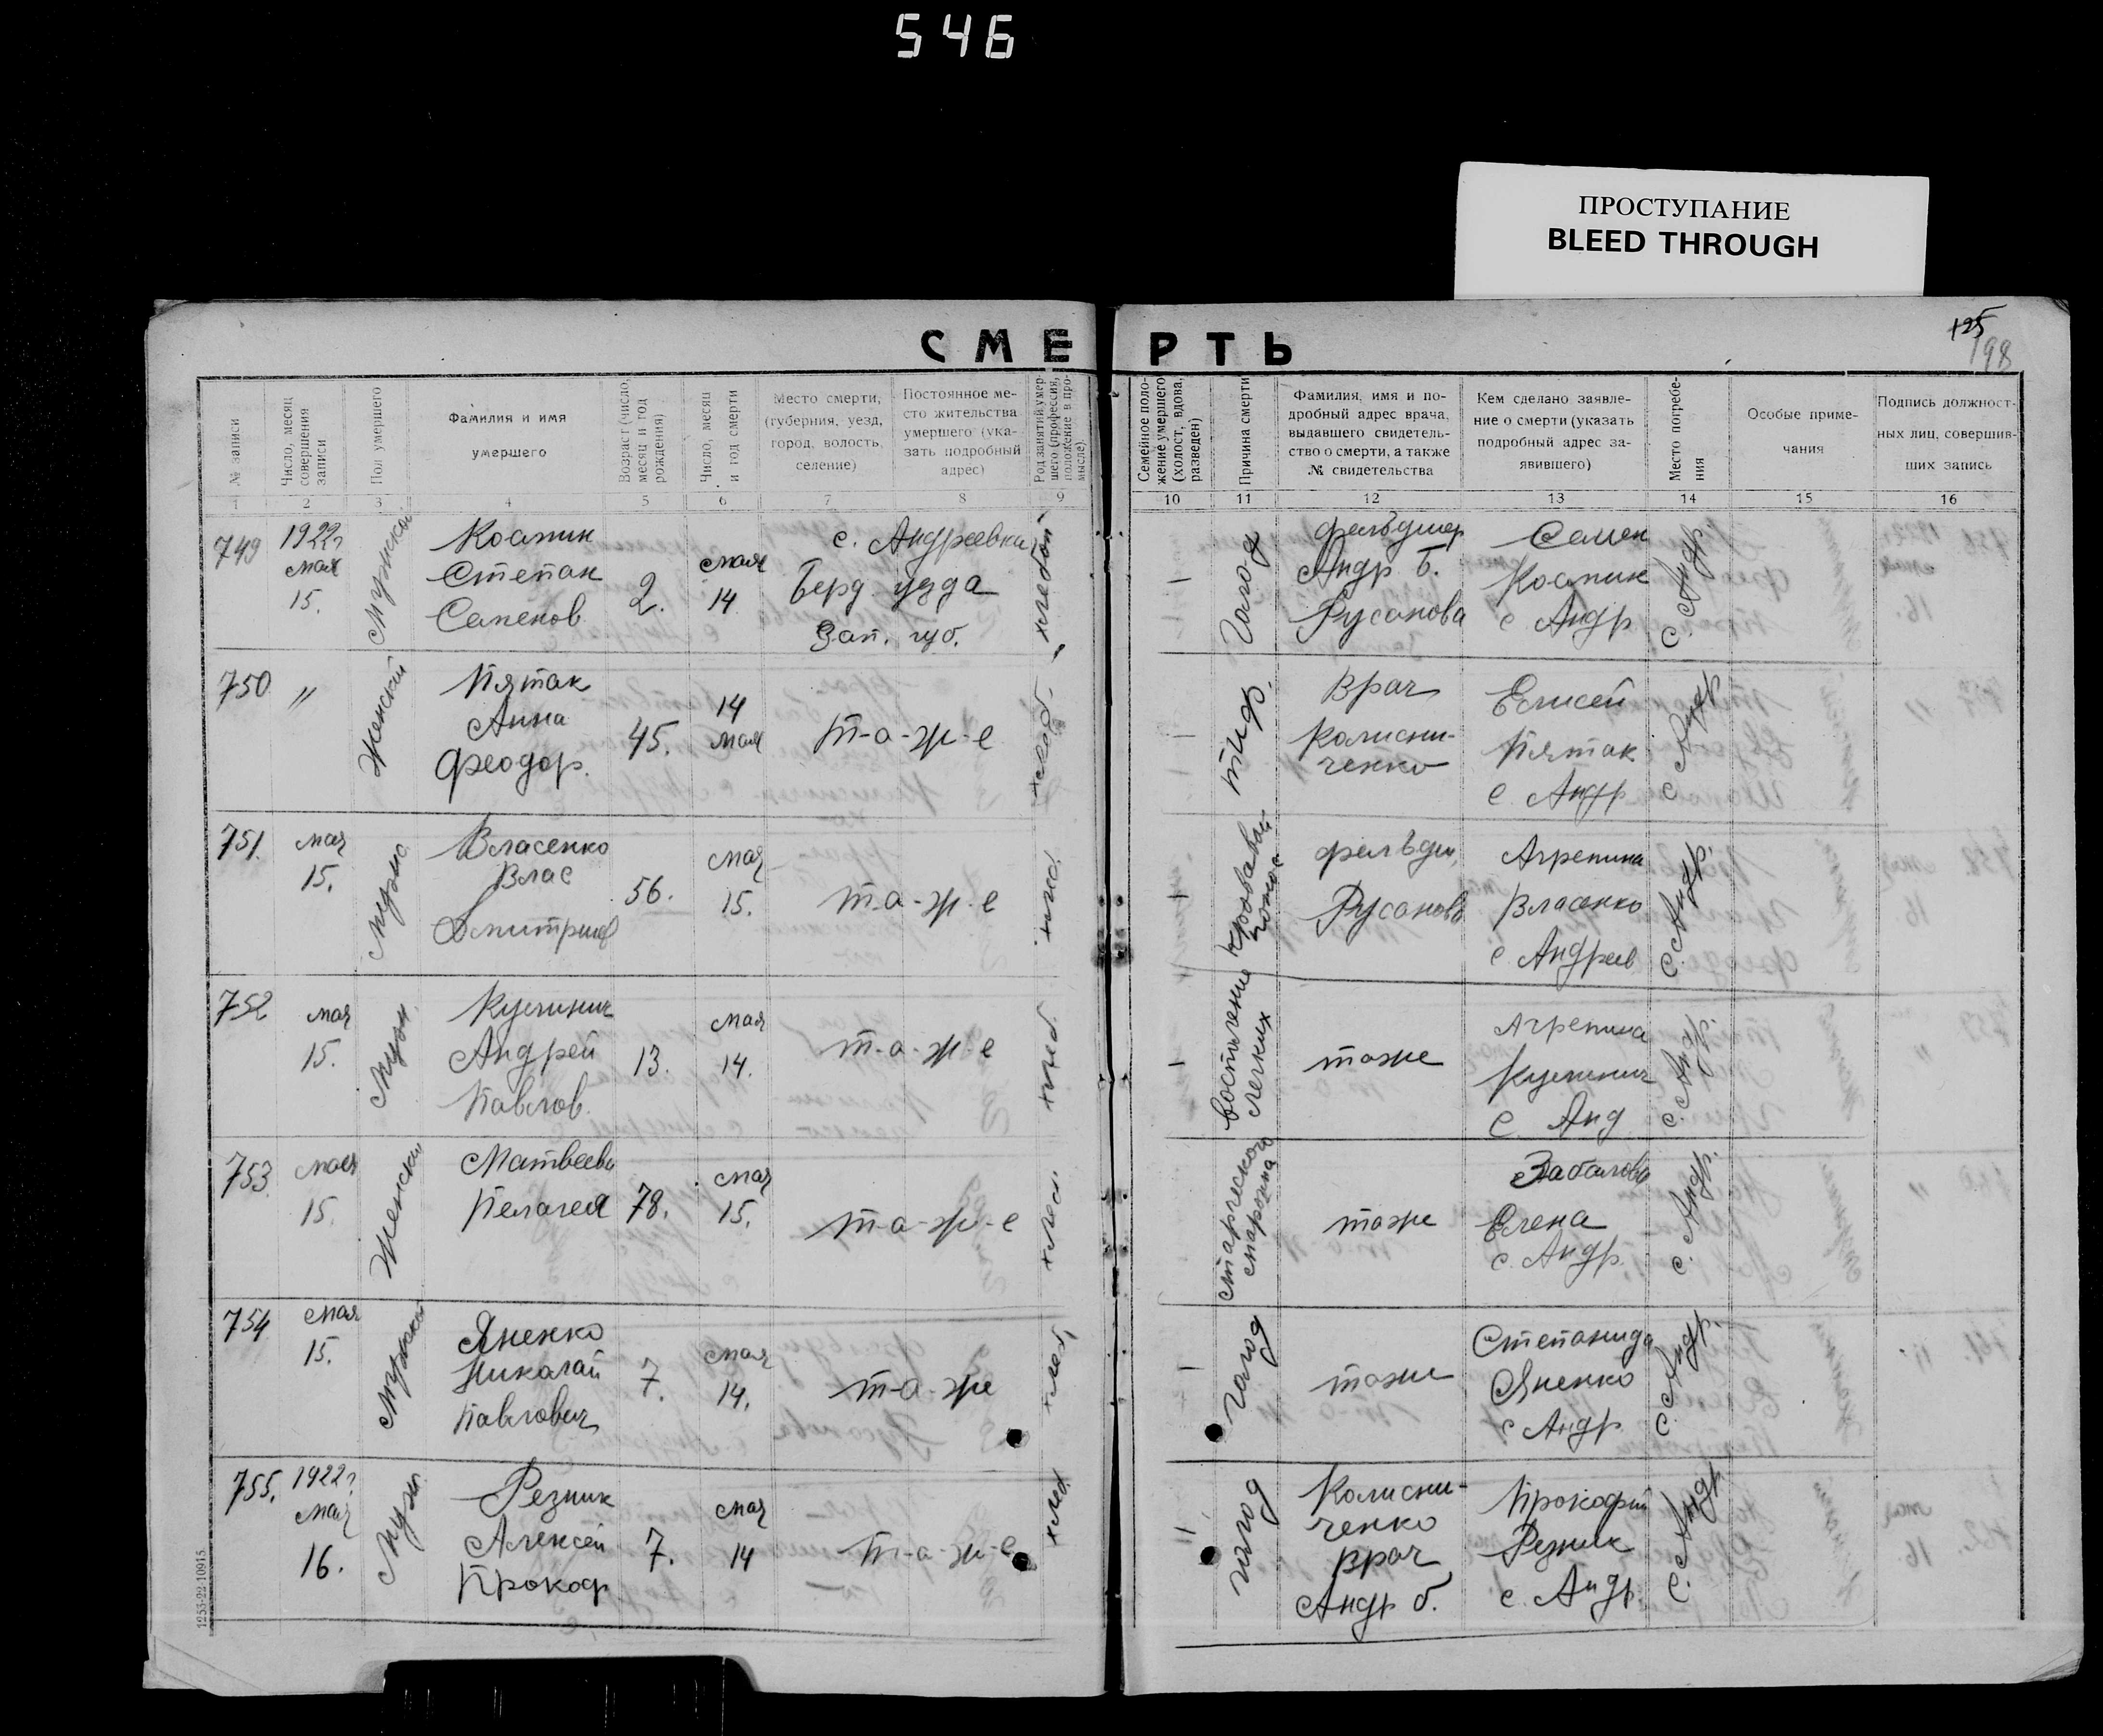 546
ПРОСТУПАНИЕ
BLEED THROUGH
125
198
СМЕРТЬ
№ записи
Число, месяц совершения записи
Пол умершего
Фамилия и имя умершего
Возраст (число, месяц и год рождения)
Число, месяц и год смерти
Место смерти, (губерния, уезд, город, волость, селение)
Постоянное место жительства умершего (указать подробный адрес)
Род занятий умершего (профессия, положение в промысле).
Семейное положение умершего (холост, вдова, разведен)
Причина смерти
Фамилия, имя и подробный адрес врача, выдавшего свидетельство о смерти, а также № свидетельства
Кем сделано заявление о смерти (указать подробный адрес заявившего)
Место погребения
Особые примечания
Подпись должностных лиц, совершивших запись
1 2 3 4 5 6 7 8 9 10 11 12 13 14 15 16
749
1922 г
мая
15.
Мужской
Степан
2.
мая
14
с. Андреевка
Берд. уезда
Зап. губ.
Голод
фельдшер
Андр Б.
Русанова
Семен
с Андр
с. Андр.
750
"
Женский
Пятак
Анна
Феодор.
45.
14
мая
т-о-ж-е
хлеб.
тиф.
Врач
Колисни-
ченко
Елисей
Пятак
с. Андр
с Андр.
751.
мая
15.
Власенко
Влас
Дмитриев
56.
мая
15.
т-о-ж-е
Кровавый понос
фельдш.
Русанова
Агрепина
Власенко
с Андреев
с. Андр.
752
мая
15.
Муж.
Андрей
Павлов.
13.
мая
14.
т-о-ж-е
хлеб.
воспаление легких
тоже
Агрепина
с. Анд
с. Андр.
753.
мая
15.
Женский
Матвеева
Пелагея
78.
мая
15.
т-о-ж-е
тоже
Елена
с. Андр.
с. Андр.
754
мая
15.
Мужской
Яненко
Николай
Павлович
7.
мая
14.
т-о-же
хлеб.
голод
тоже
Степанида
Яненко
с Андр
с. Андр.
755.
1922 г.
мая
16.
Муж.
Резник
Алексей
Прокоф
7.
мая
14
т-о-ж-е
хлеб
голод
Колисни-
ченко
врач
Андр б.
Прокофий
Резник
с. Андр.
с. Андр
1253-22-10915